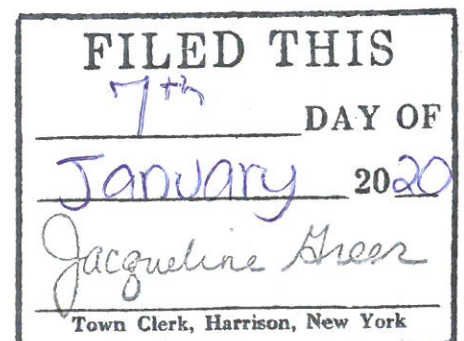 FILED THIS
7th DAY OF
January 2020
Jacqueline Greer
Town Clerk, Harrison, New York